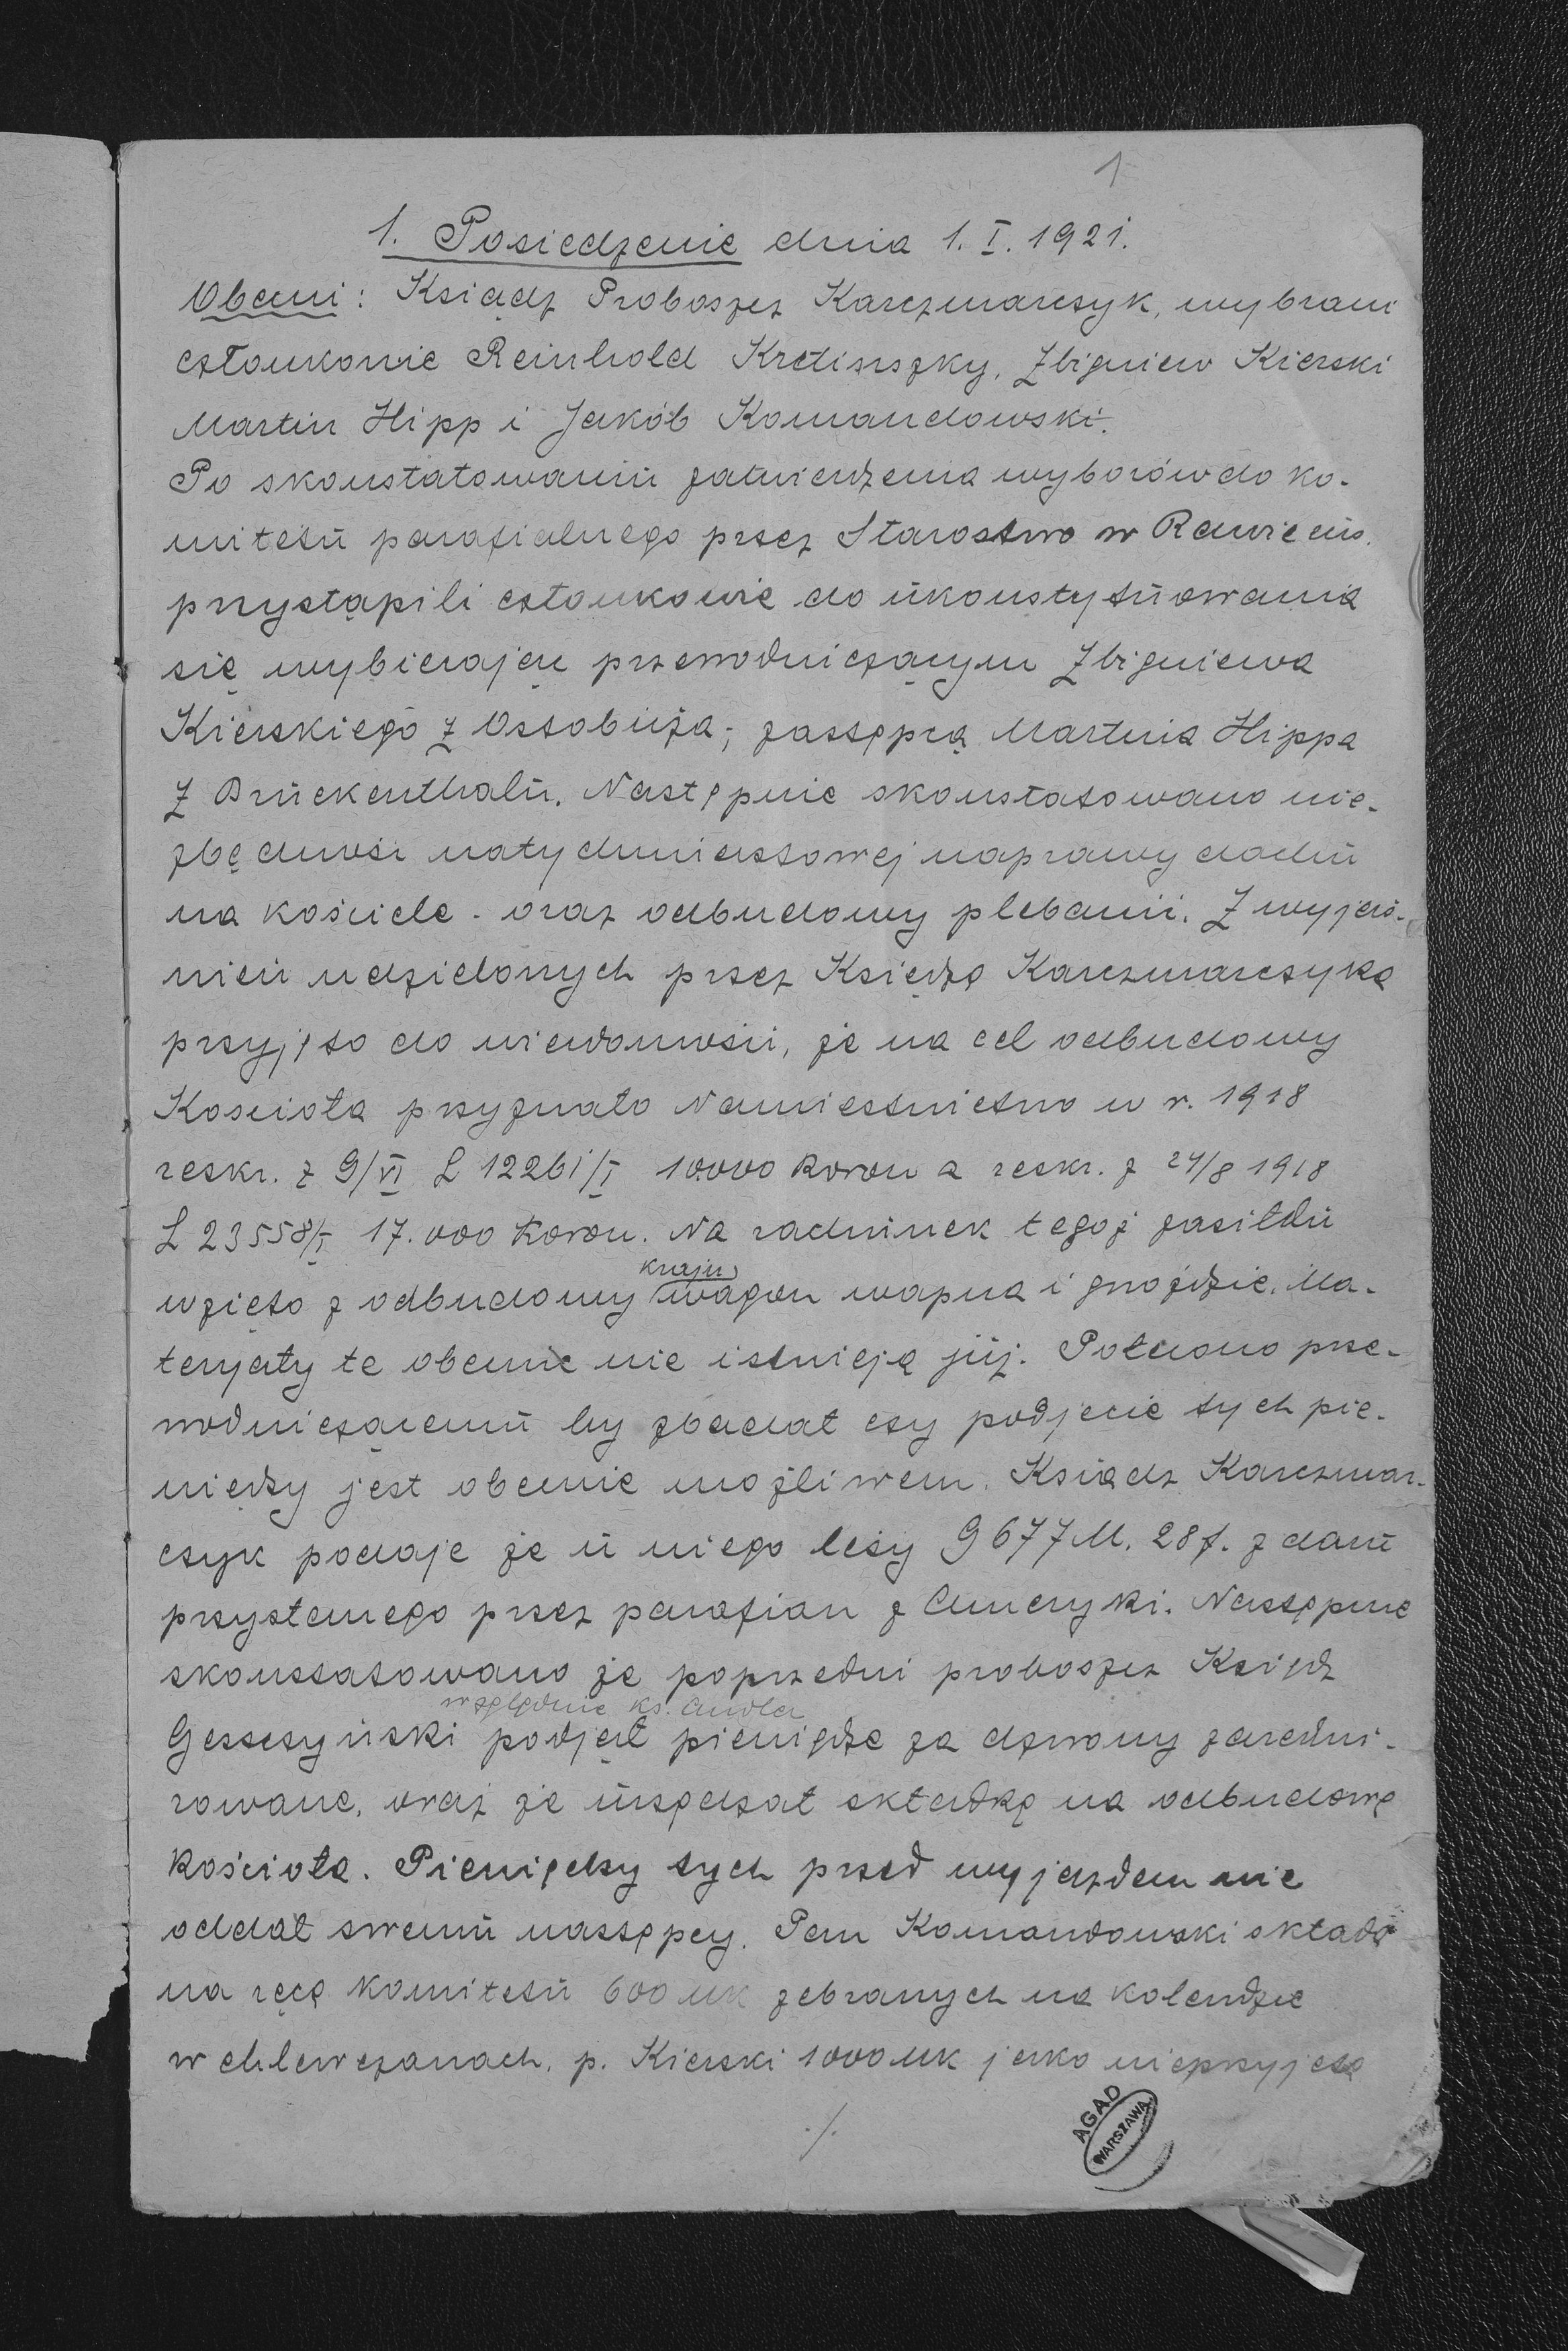 1
1. Posiedzenie dnia 1. I. 1921.
Obecni: Ksiądz Proboszcz Karczmarczyk, wybrani
członkowie Reinhold Zbigniew Kierski
Martin Hipp i Jakób Komandowski.
Po skonstatowaniu zatwierdzenia wyborów do ko-
mitetu parafialnego przez Starostwo w Rawie
przystąpili członkowie do ukonstytuowania
się wybierając przewodniczącym Zbigniewa
Kierskiego z Ostobuża; zastępcą Martina Hippa
z Brückenthalu. Następnie skonstatowano nie-
zbędność natychmiastowej naprawy dachu
na kościele - oraz odbudowy plebanii. Z wyjaś-
nień udzielonych przez Księdza Karczmarczyka
przyjęto do wiadomości, że na cel odbudowy
Kościoła przyznało Namiestnictwo w r. 1918
reskr. z 9/VI L 12261/I 10.000 Koron a reskr. z 24/8 1918
L 23558/I 17.000 Koron. Na rachunek tegoż zasiłku
kraju
wzięto z odbudowy wagon wapna i gwoździe. Ma-
terjały te obecnie nie istnieją już. Polecono prze-
wodniczącemu by zbadał czy podjęcie tych pie-
niędzy jest obecnie możliwem. Ksiądz Karczmar-
czyk podaje że u niego leży 9677 M. 28 f. z daru
przysłanego przez parafian z Ameryki. Następnie
skonstatowano że poprzedni proboszcz Ksiądz
względnie ks.
podjął pieniądze za dzwony zarekwi-
rowane, oraz że składkę na odbudowę
Kościoła. Pieniędzy tych przed wyjazdem nie
oddał swemu następcy. Pan Komandowski składa
na ręce Komitetu 600 mk zebranych na kolendzie
w Chlewczanach, p. Kierski 1000 mk jako nieprzyjętą
./.
AGAD
WARSZAWA